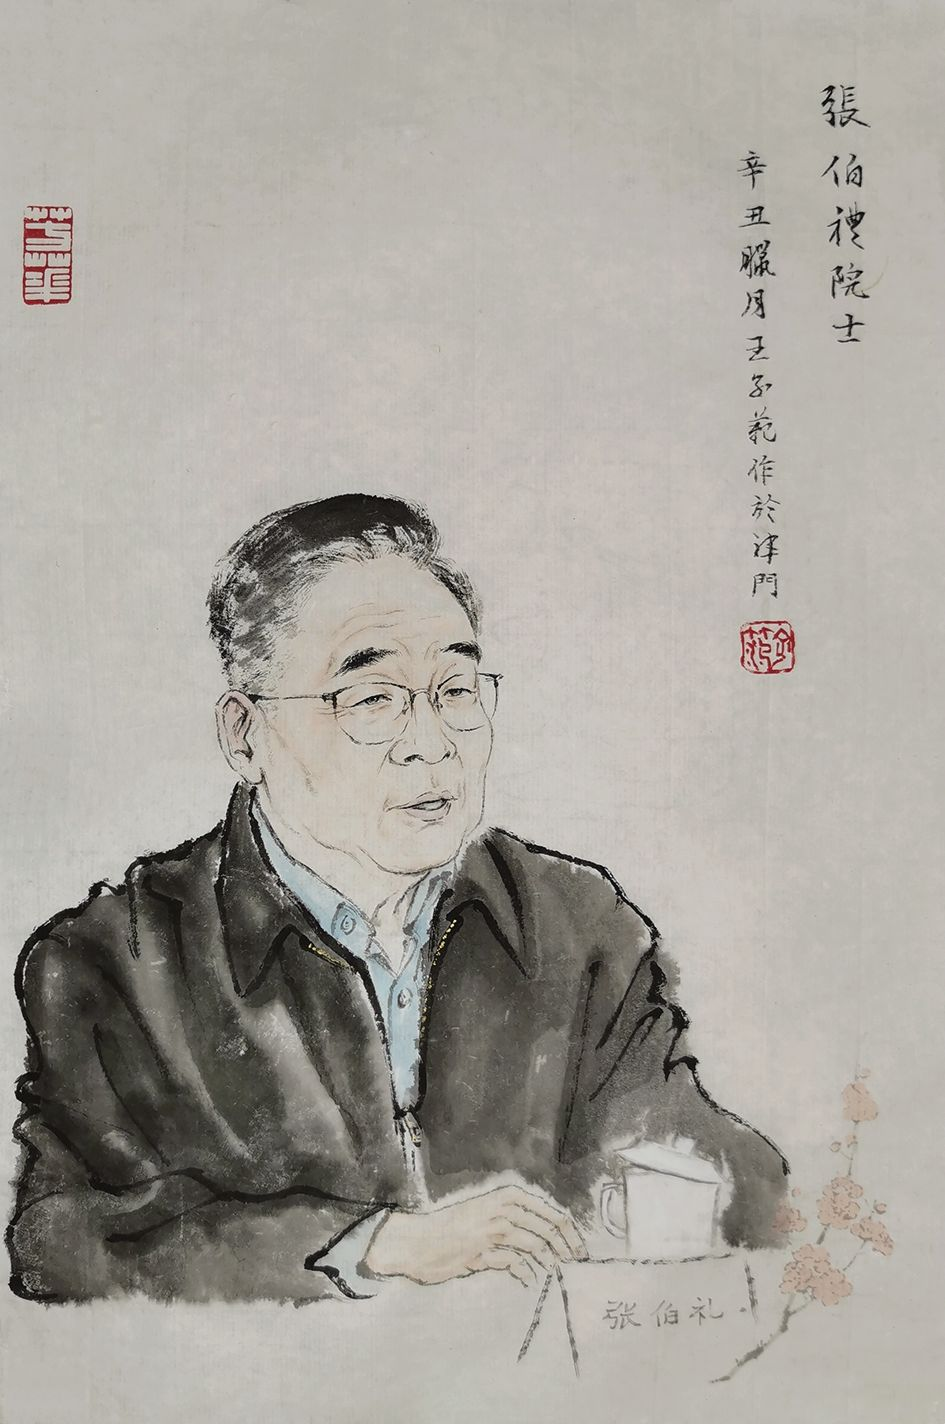 張伯禮院士
辛丑臘月王子範作於津門
子範
芳華
张伯礼